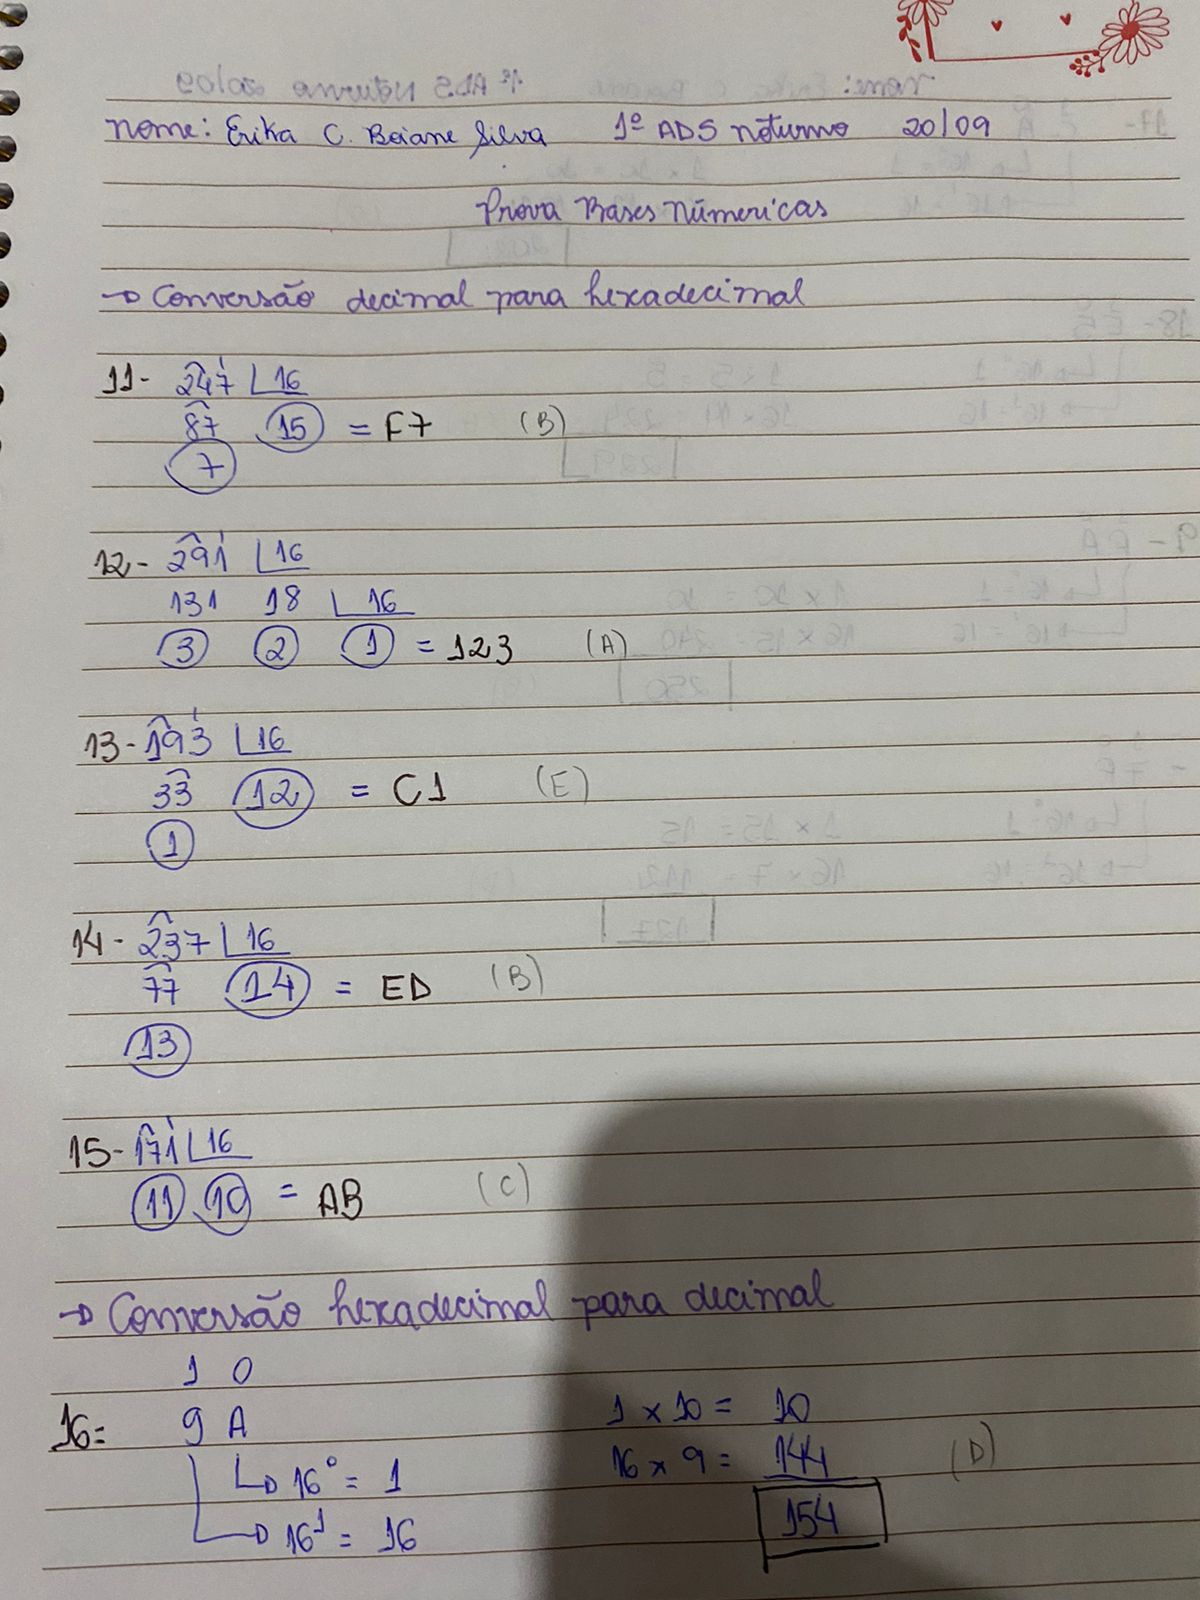 nome: Erika C. Beiane Silva 1º ADS noturno 20/09
Prova Bases Númericas
→ Conversão decimal para hexadecimal
11- 247 16
87 15 = F7 (B)
7
12- 291 16
131 18 16
3 2 1 = 123 (A)
13- 193 16
33 12 = C1 (E)
1
14- 237 16
77 14 = ED (B)
13
15- 171 16
11 10 = AB (C)
→ Conversão hexadecimal para decimal
1 0
16= 9 A 1 x 10 = 10
16 x 9 = 144 (D)
→ 16⁰ = 1
154
→ 16¹ = 16